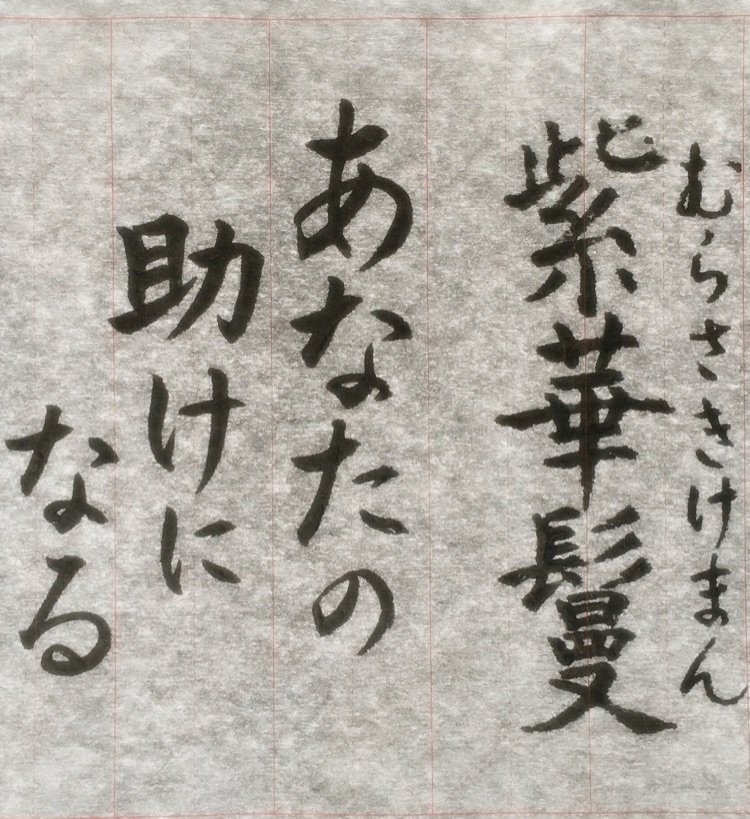 むらさきけまん
紫華鬘
あなたの
助けに
なる